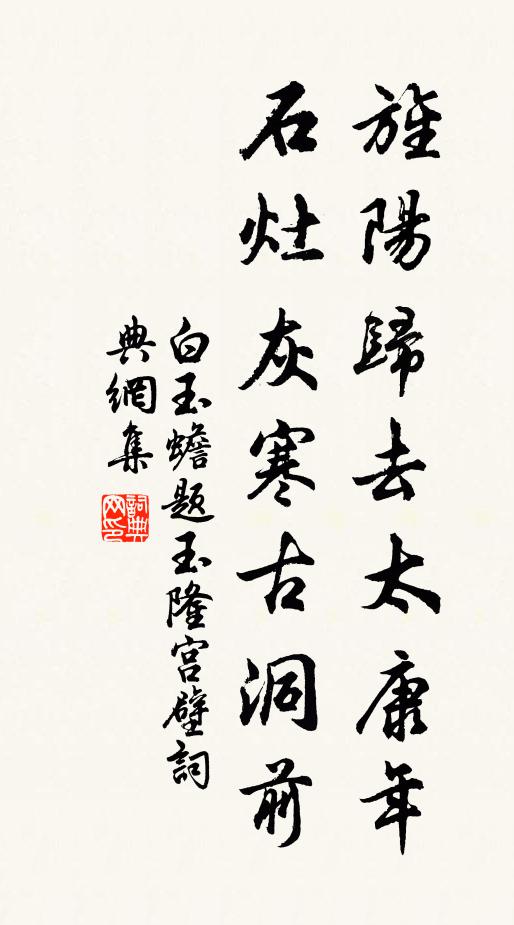 旌陽歸去太康年
石灶灰寒古洞前
白玉蟾题玉隆宫壁詞
典網集
詞典网印